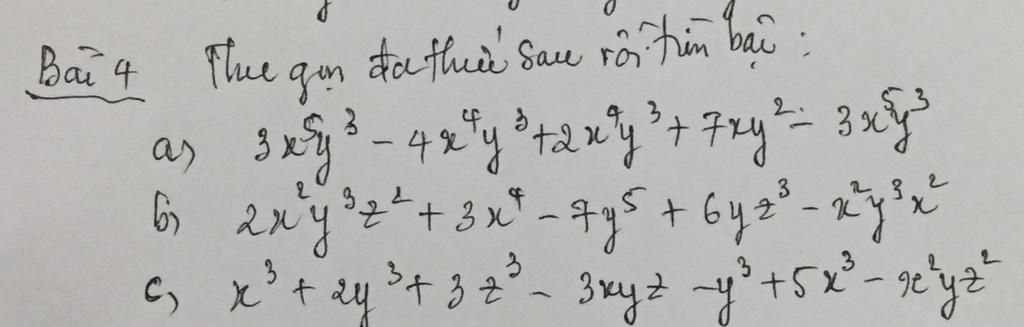 Bài 4 Thu gọn đa thức sau rồi tìm bậc :
a) 3x⁵y³ - 4x⁴y³ + 2x⁴y³ + 7xy² - 3x⁵y³
b) 2x²y³z² + 3x⁴ - 7y⁵ + 6yz³ - x²y³x²
c) x³ + 2y³ + 3z³ - 3xyz - y³ + 5x³ - x²yz²